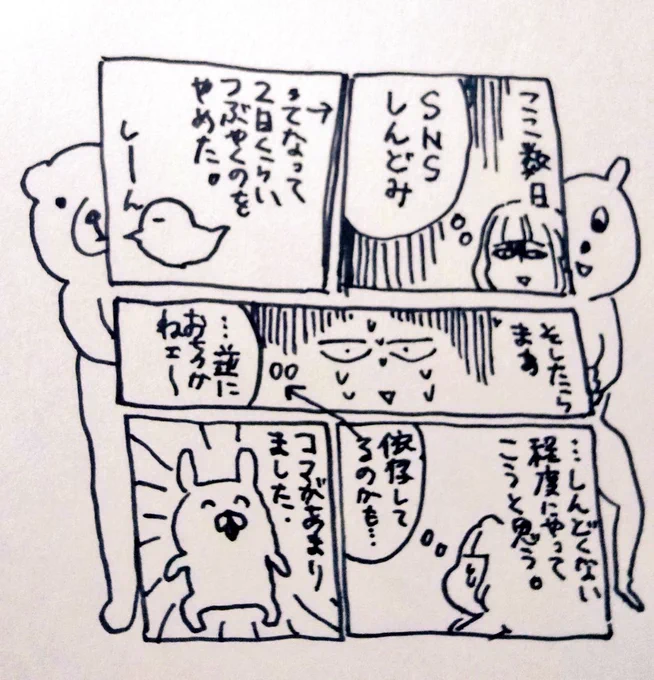 ここ数日
SNS
しんどみ
→
ってなって
2日くらい
つぶやくのを
やめた。
しーん
そしたら
まあ
…逆に
おちつか
ねェ〜
…しんどくない
程度にやって
こうと思う。
依存して
るのかも…
コマがあまり
ました.